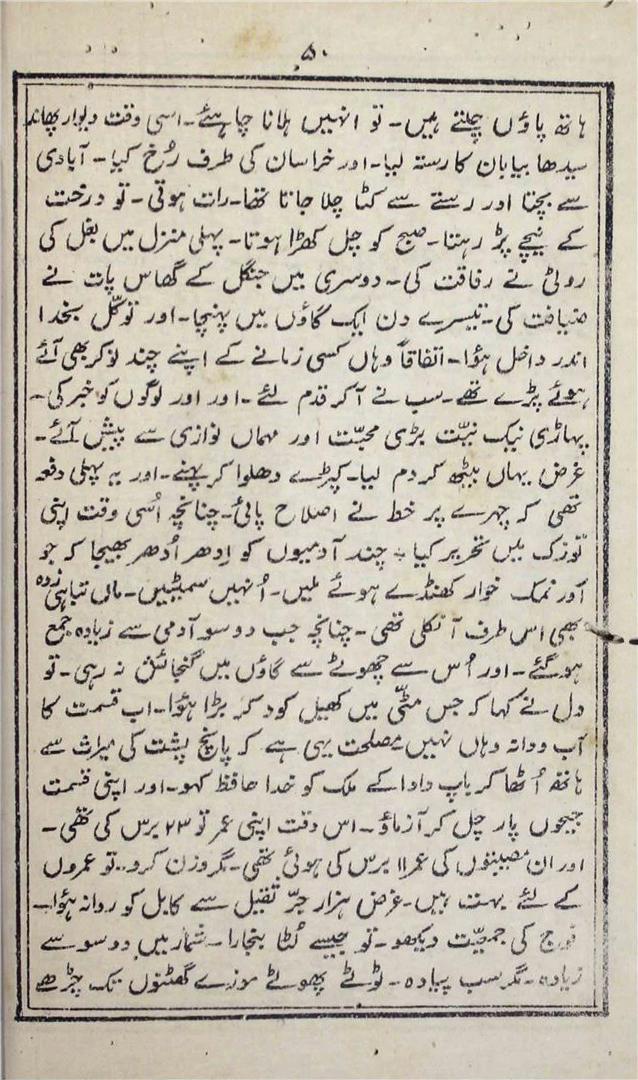 ۵۰
ہاتھ پاؤں چلتے ہیں۔ تو انہیں ہلانا چاہئے۔ اسی وقت دیوار پھاند
سیدھا بیابان کا رستہ لیا۔ اور خراسان کی طرف رُخ کیا۔ آبادی
سے بچتا اور رستے سے کٹا چلا جاتا تھا۔ رات ہوتی۔ تو درخت
کے نیچے پڑ رہتا۔ صبح کو چل کھڑا ہوتا۔ پہلی منزل میں بغل کی
روٹی نے رفاقت کی۔ دوسری میں جنگل کے گھاس پات نے
ضیافت کی۔ تیسرے دن ایک گاؤں میں پہنچا۔ اور توکّل بخدا
اندر داخل ہؤا۔ اتفاقاً وہاں کسی زمانے کے اپنے چند نوکر بھی آئے
ہوئے پڑے تھے۔ سب نے آ کر قدم لئے۔ اور اور لوگوں کو خبر کی۔
پہاڑی نیک نیّت بڑی محبّت اور مہماں نوازی سے پیش آئے۔
غرض یہاں بیٹھ کر دم لیا۔ کپڑے دھلوا کر پہنے۔ اور یہ پہلی دفعہ
تھی کہ چہرے پر خط نے اصلاح پائی۔ چنانچہ اُسی وقت اپنی
توزک میں تحریر کیا۔ چند آدمیوں کو اِدھر اُدھر بھیجا کہ جو
اَور نمک خوار کھنڈے ہوئے ملیں۔ اُنہیں سمیٹیں۔ ماں تباہی زدہ
بھی اس طرف آ نکلی تھی۔ چنانچہ جب دو سو آدمی سے زیادہ جمع
ہو گئے۔ اور اُس سے چھوٹے سے گاؤں میں گنجائش نہ رہی۔ تو
دل نے کہا کہ جس مٹّی میں کھیل کود کر بڑا ہؤا۔ اب قسمت کا
آب و دانہ وہاں نہیں مصلحت یہی ہے کہ پانچ پشت کی میراث سے
ہاتھ اُٹھا کر باپ دادا کے ملک کو خدا حافظ کہو۔ اور اپنی قسمت
جیحوں پار چل کر آزماؤ۔ اس وقت اپنی عمر تو ۲۳ برس کی تھی۔
اور ان مصیبتوں کی عمر ۱۱ برس کی ہوئی تھی۔ مگر وزن کرو۔ تو عمروں
کے لئے بہت ہیں۔ غرض ہزار جرِّ ثقیل سے کابل کو روانہ ہؤا۔
فوج کی جمعیّت دیکھو۔ تو جیسے لُٹا بنجارا۔ شمار میں دو سو سے
زیادہ۔ مگر سب پیادہ۔ ٹوٹے پھوٹے موزے گھٹنوں تک چڑھے